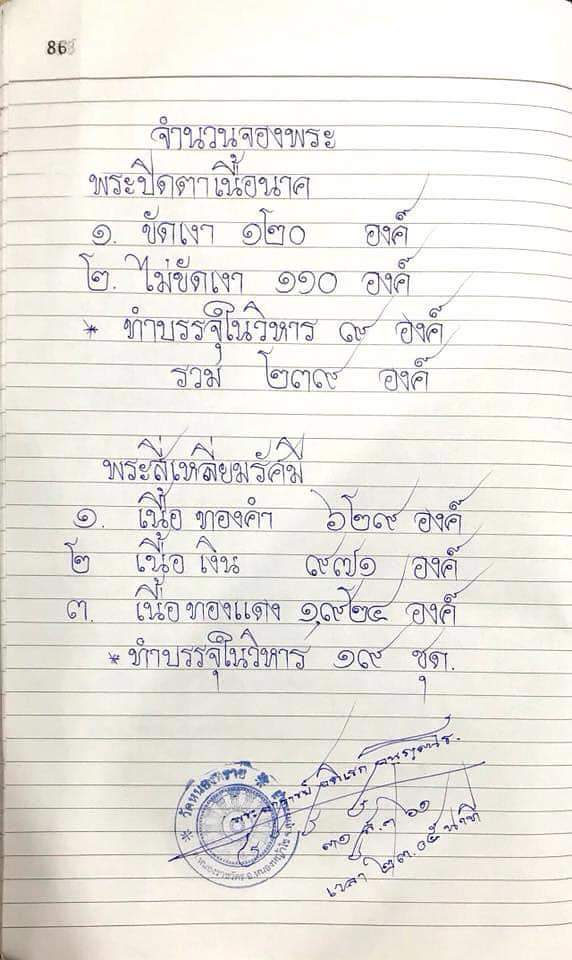 86
จำนวนจองพระ
พระปิดตาเนื้อนาค
๑. ขัดเงา ๑๒๐ องค์
๒. ไม่ขัดเงา ๑๑๐ องค์
* ทำบรรจุในวิหาร ๙ องค์
รวม ๒๓๙ องค์
พระสี่เหลี่ยมรัศมี
๑. เนื้อ ทองคำ ๖๒๙ องค์
๒ เนื้อ เงิน ๙๗๑ องค์
๓. เนื้อ ทองแดง ๑,๙๒๔ องค์
* ทำบรรจุในวิหาร ๑๙ ชุด.
๓๑ ส.ค ๖๑
เวลา ๒๓.๐๕ นาที